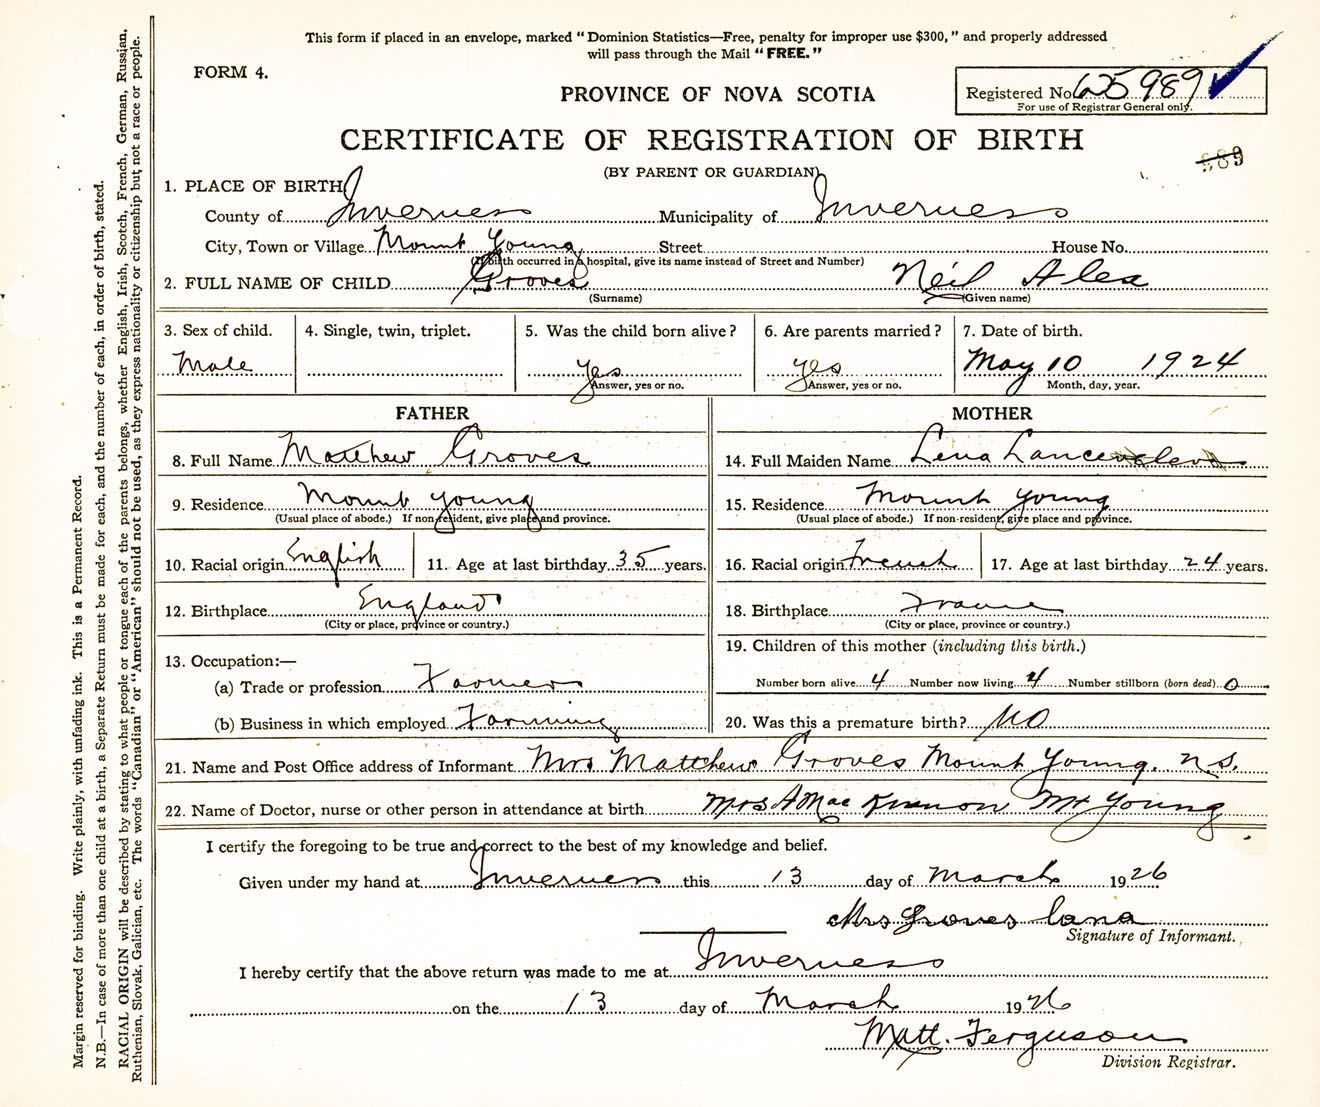 This form if placed in an envelope, marked “Dominion Statistics—Free, penalty for improper use $300,” and properly addressed
will pass through the Mail “FREE.”
FORM 4.
Registered No. 625989
For use of Registrar General only.
PROVINCE OF NOVA SCOTIA
CERTIFICATE OF REGISTRATION OF BIRTH
989
(BY PARENT OR GUARDIAN)
1. PLACE OF BIRTH
County of Inverness Municipality of Inverness
City, Town or Village Mount Young Street House No.
(If birth occurred in a hospital, give its name instead of Street and Number)
2. FULL NAME OF CHILD Groves Neil Alex
(Surname) (Given name)
3. Sex of child. 4. Single, twin, triplet. 5. Was the child born alive? 6. Are parents married? 7. Date of birth.
Male yes yes May 10 1924
Answer, yes or no. Answer, yes or no. Month, day, year.
FATHER MOTHER
8. Full Name Matthew Groves 14. Full Maiden Name Lena
9. Residence Mount Young 15. Residence Mount Young
(Usual place of abode.) If non-resident, give place and province. (Usual place of abode.) If non-resident, give place and province.
10. Racial origin English 11. Age at last birthday 35 years. 16. Racial origin French 17. Age at last birthday 24 years.
12. Birthplace England 18. Birthplace France
(City or place, province or country.) (City or place, province or country.)
13. Occupation:— 19. Children of this mother (including this birth.)
(a) Trade or profession Farmer Number born alive 4 Number now living 4 Number stillborn (born dead) 0
(b) Business in which employed Farming 20. Was this a premature birth? No
21. Name and Post Office address of Informant Mrs Matthew Groves Mount Young. N.S.
22. Name of Doctor, nurse or other person in attendance at birth Mrs A MacKinnon Mt Young
I certify the foregoing to be true and correct to the best of my knowledge and belief.
Given under my hand at Inverness this 13 day of March 1926
Mrs Groves Lana
Signature of Informant.
I hereby certify that the above return was made to me at Inverness
on the 13 day of March 1926
Matt. Ferguson
Division Registrar.
Margin reserved for binding. Write plainly, with unfading ink. This is a Permanent Record.
N.B.—In case of more than one child at a birth, a Separate Return must be made for each, and the number of each, in order of birth, stated.
RACIAL ORIGIN will be described by stating to what people or tongue each of the parents belongs, whether English, Irish, Scotch, French, German, Russian,
Ruthenian, Slovak, Galician, etc. The words “Canadian” or “American” should not be used, as they express nationality or citizenship but not a race or people.